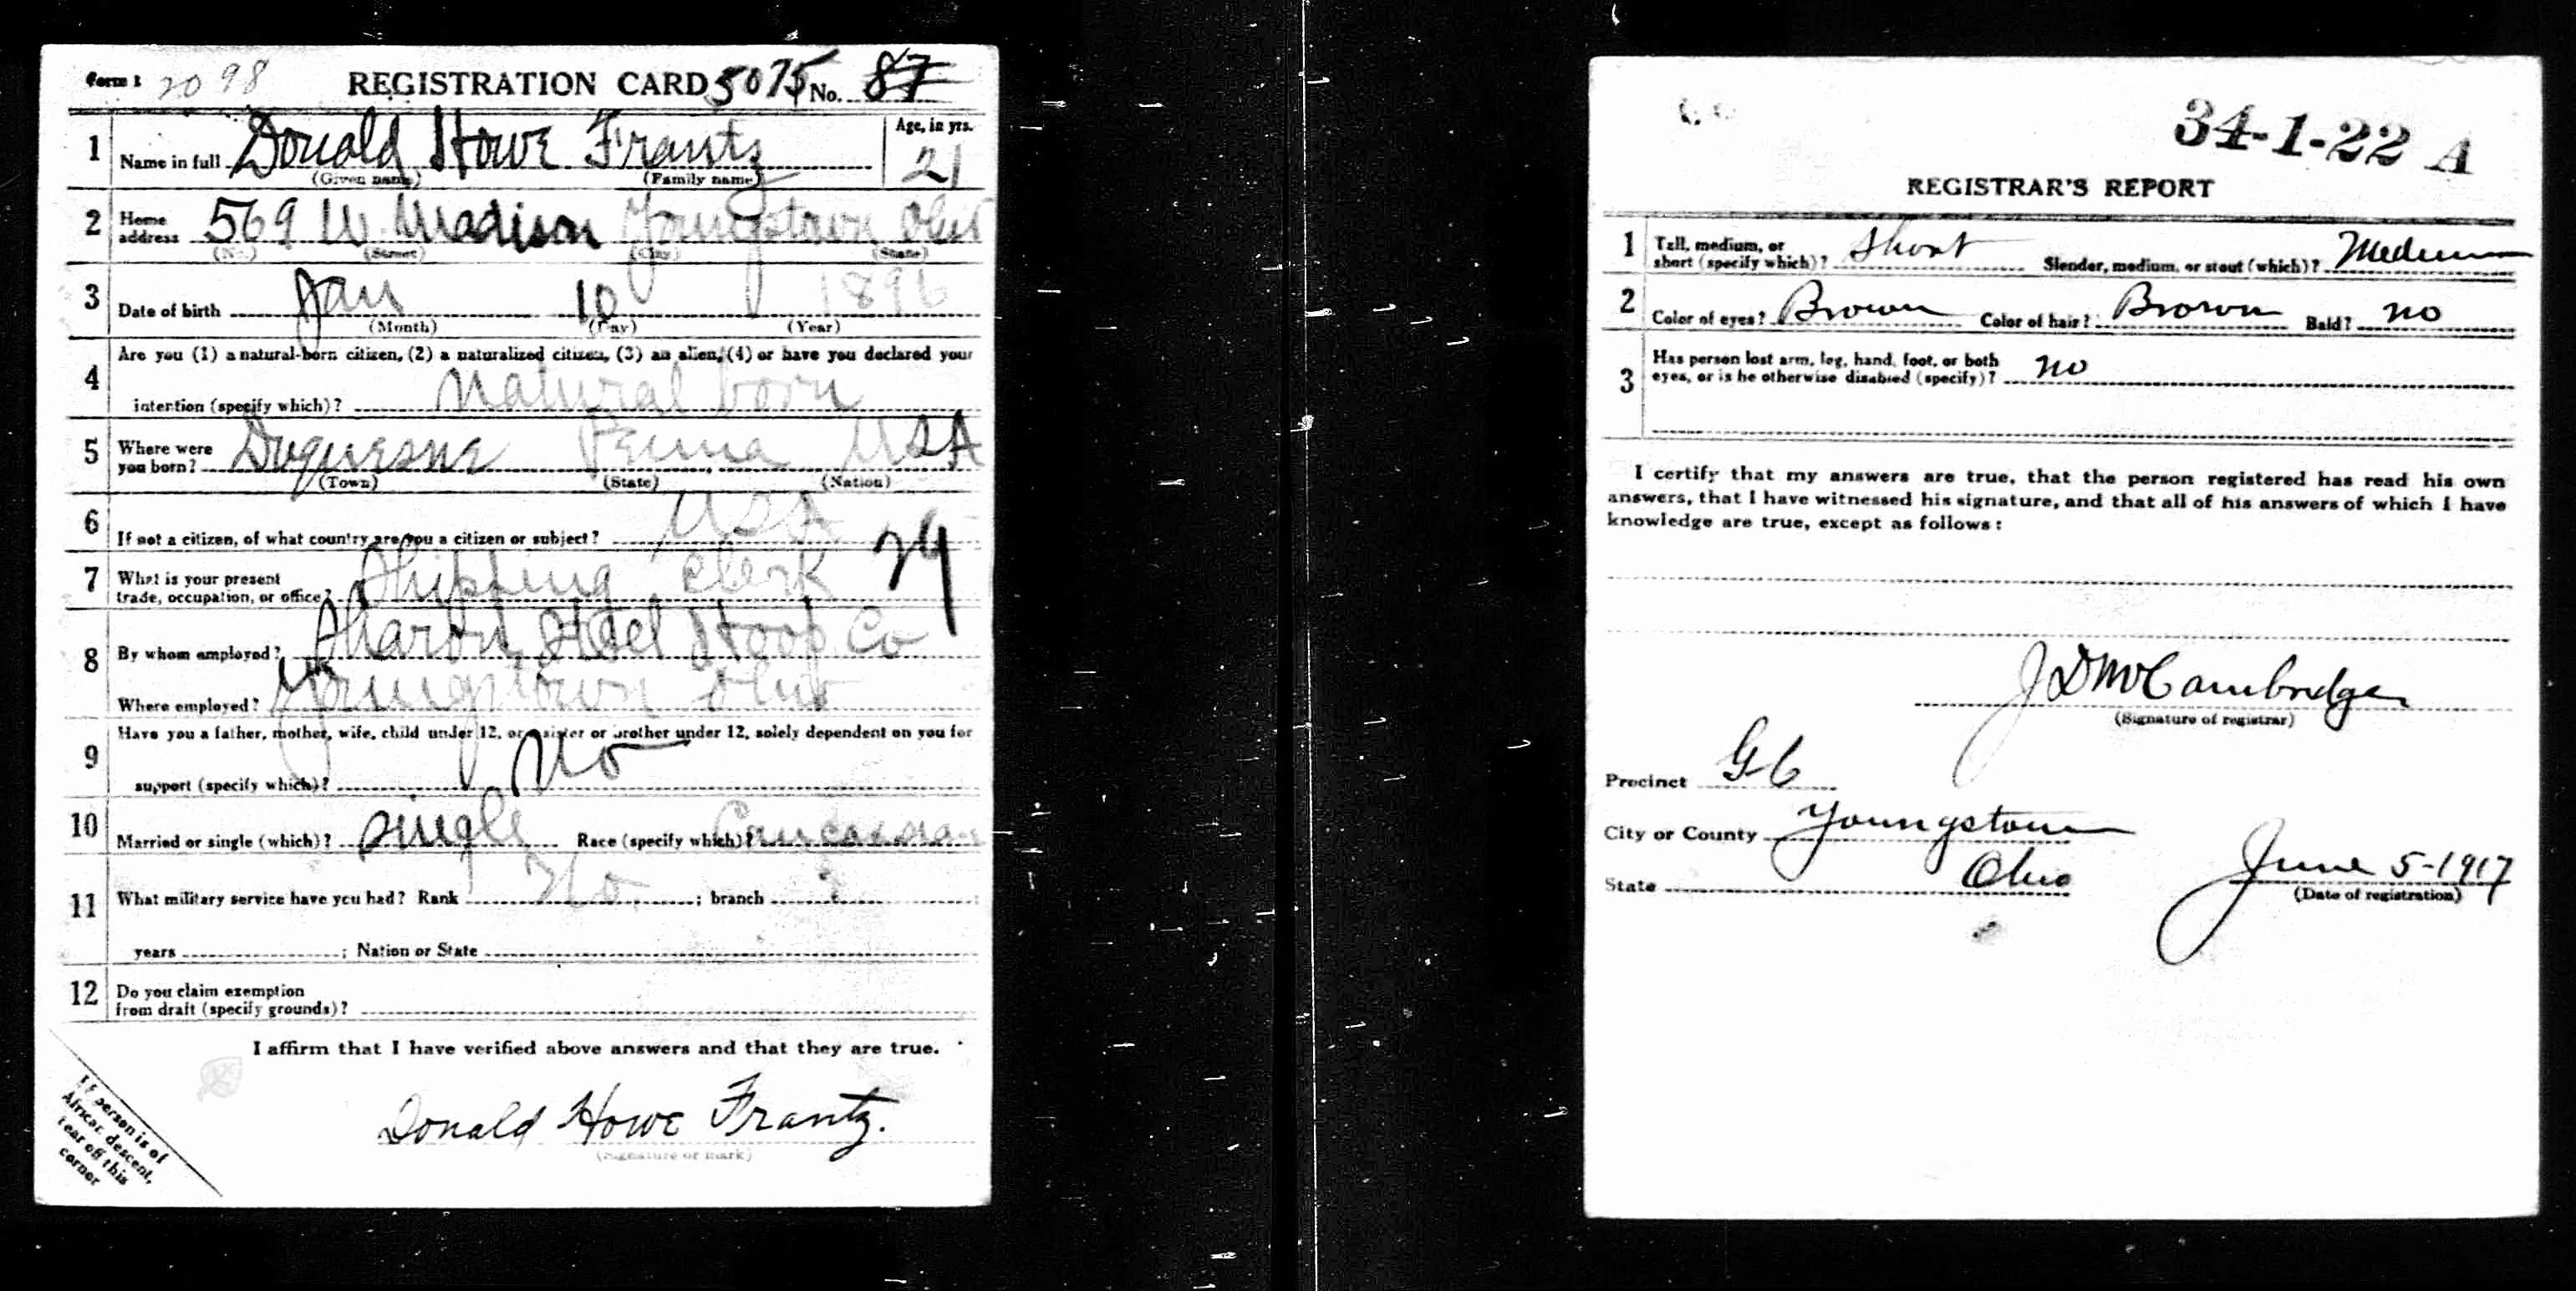 Form 1 2098 REGISTRATION CARD 5075 No. 87
1 Name in full Donald Howe Frantz Age, in yrs. 21
(Given name) (Family name)
2 Home address 569 W. Madison Youngstown Ohio
(No.) (Street) (City) (State)
3 Date of birth Jan 10 1896
(Month) (Day) (Year)
4 Are you (1) a natural-born citizen, (2) a naturalized citizen, (3) an alien, (4) or have you declared your
intention (specify which)? Natural born
5 Where were you born? Duquesne Penna USA
(Town) (State) (Nation)
6 If not a citizen, of what country are you a citizen or subject? USA
7 What is your present
trade, occupation, or office? Shipping Clerk 24
8 By whom employed? Sharon Steel Hoop Co
Where employed? Youngstown Ohio
9 Have you a father, mother, wife, child under 12, or a sister or brother under 12, solely dependent on you for
support (specify which)? No
10 Married or single (which)? Single Race (specify which)? Caucasian
11 What military service have you had? Rank No ; branch
years ; Nation or State
12 Do you claim exemption
from draft (specify grounds)?
I affirm that I have verified above answers and that they are true.
Donald Howe Frantz.
(Signature or mark)
If person is of
African descent,
tear off this
corner
34-1-22 A
REGISTRAR'S REPORT
1 Tall, medium, or
short (specify which)? Short Slender, medium, or stout (which)? Medium
2 Color of eyes? Brown Color of hair? Brown Bald? no
3 Has person lost arm, leg, hand, foot, or both
eyes, or is he otherwise disabled (specify)? no
I certify that my answers are true, that the person registered has read his own
answers, that I have witnessed his signature, and that all of his answers of which I have
knowledge are true, except as follows:
J D McCambridge
(Signature of registrar)
Precinct G 6
City or County Youngstown
State Ohio June 5-1917
(Date of registration)